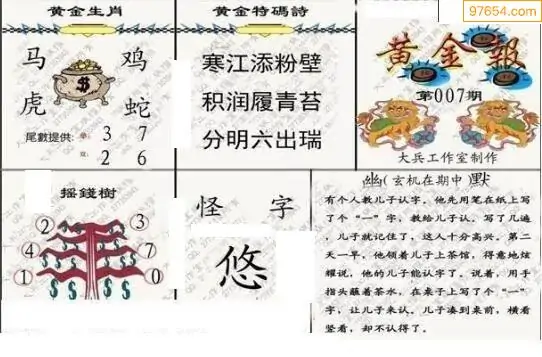 97654.com
黄金生肖
马 鸡
虎 蛇
尾數提供: 单: 3 7
双: 2 6
黄金特碼詩
寒江添粉壁
积润履青苔
分明六出瑞
黄金報
第007期
大兵工作室制作
摇錢樹
2 3
4 7
1 0
怪 字
悠
幽(玄机在期中)默
有个人教儿子认字。他先用笔在纸上写
了个“一”字，教给儿子认。写了几遍
，儿子就记住了，这人十分高兴。第二
天一早，他领着儿子上茶馆，得意地炫
耀说，他的儿子能认字了。说着，用手
指头蘸着茶水，在桌子上写了个“一”
字，让儿子来认。儿子凑到来前，横看
竖看，却不认得了。